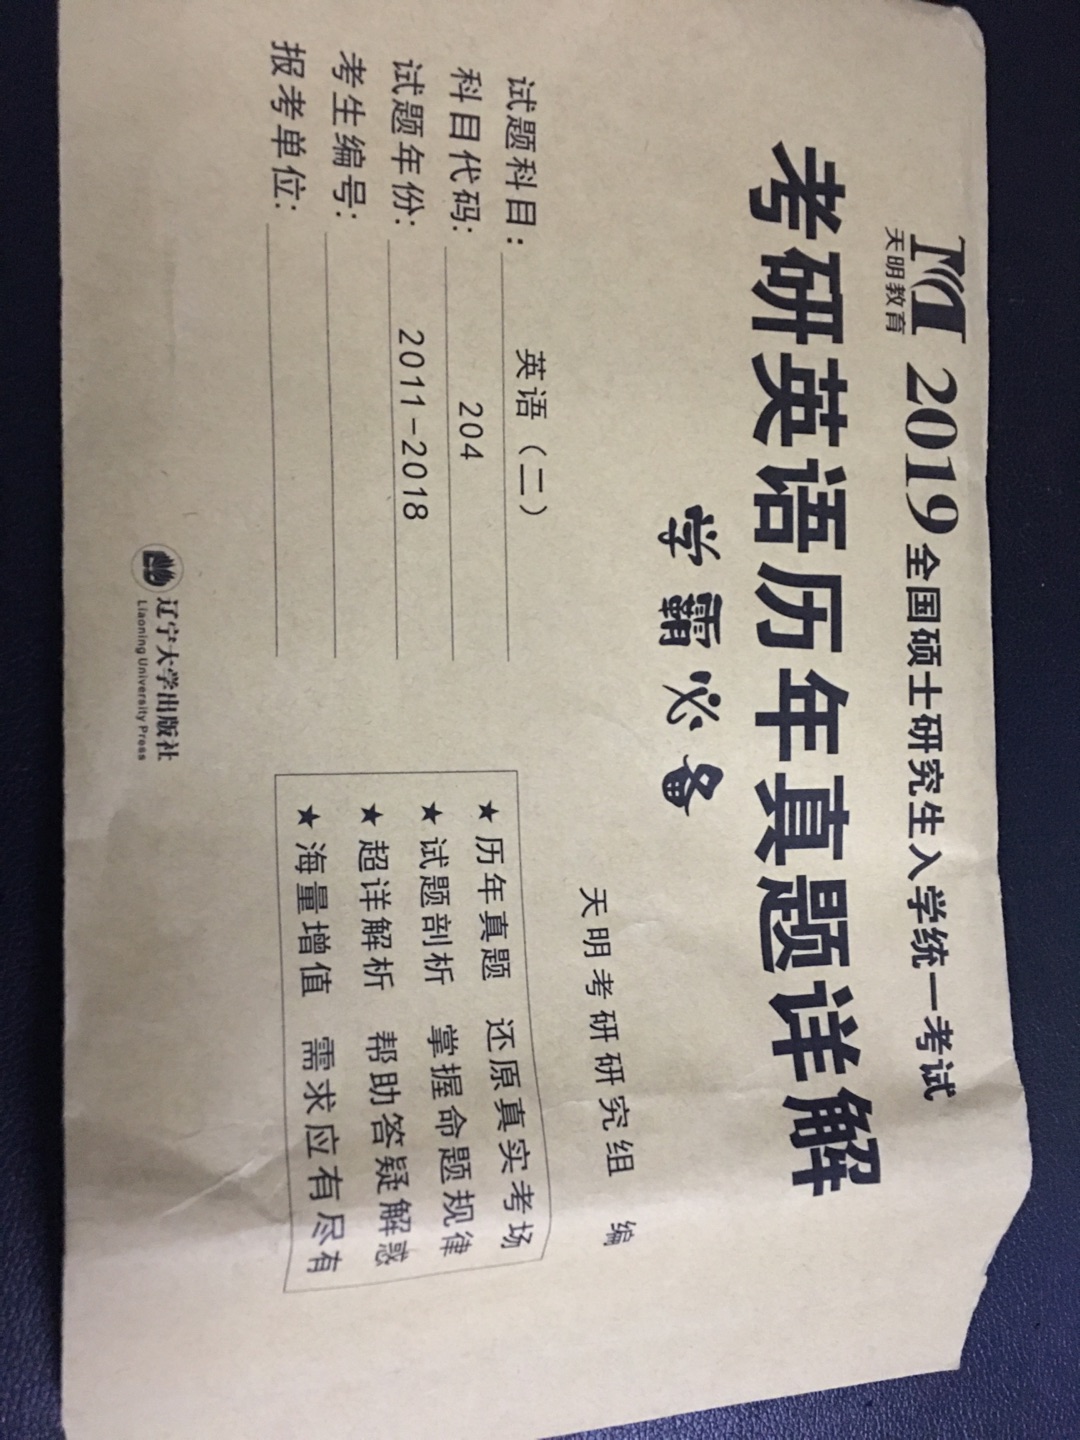 天明教育
2019全国硕士研究生入学统一考试
考研英语历年真题详解
学霸必备
天明考研研究组 编
试题科目: 英语(二)
科目代码: 204
试题年份: 2011-2018
考生编号:
报考单位:
★历年真题 还原真实考场
★试题剖析 掌握命题规律
★超详解析 帮助答疑解惑
★海量增值 需求应有尽有
辽宁大学出版社
Liaoning University Press